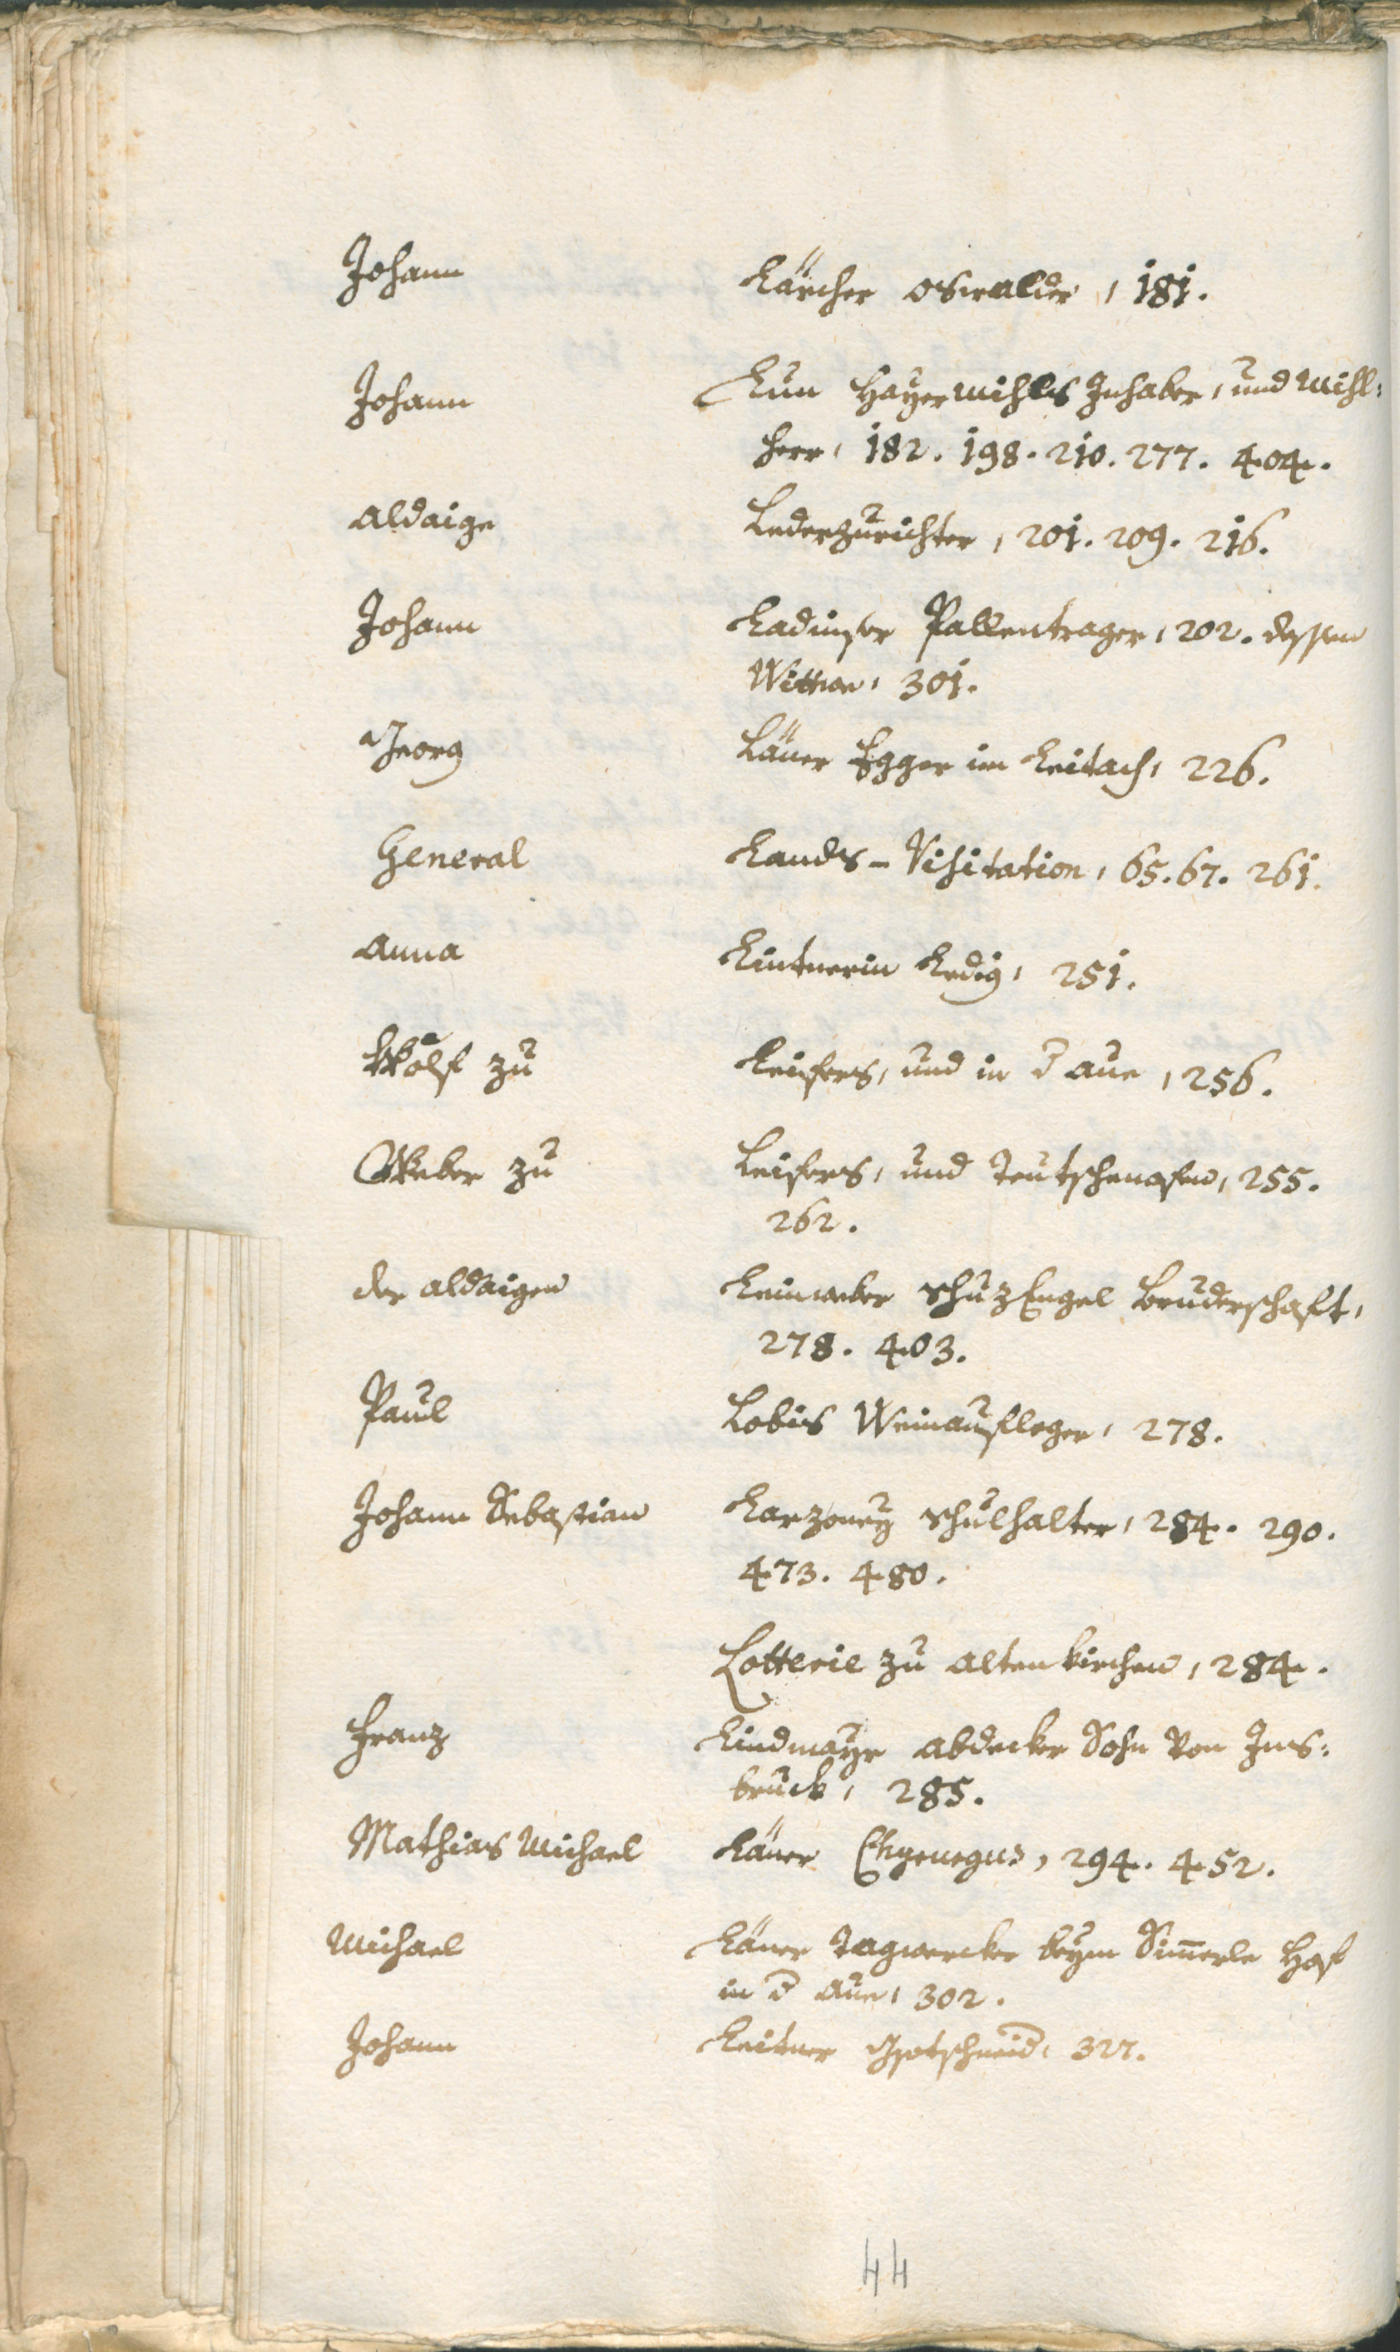 Johann Lärcher Oswalder, 181.
Johann Lun Hayrmihles Inhaber, und Mihl-
herr, 182. 198. 210. 277. 404.
Aldaige Lederzurichter, 201. 209. 216.
Johann Ladinser Pallentrager, 202. dessen
Wittwe, 301.
Georg Läner Egger im Leitach, 226.
General Lands-Visitation, 65. 67. 261.
Anna Lintnerin Ledig, 251.
Wölf zu Leifers, und in d Aue, 256.
Weber zu Leifers, und Teutschenofen, 255.
262.
der aldaigen Leinweber SchuzEngel Bruderschaft,
278. 403.
Paul Lobis Weinaufleger, 278.
Johann Sebastian Larzoney Schulhalter, 284. 290.
473. 480.
Lotterie zu Altenkirchen, 284.
Franz Lindmayr Abdecker Sohn von Ins-
bruck, 285.
Mathias Michael Läner 294. 452.
Michael Läner Tagwercker beym Simerle Hof
in d Aue, 302.
Johann Leitner 327.
44